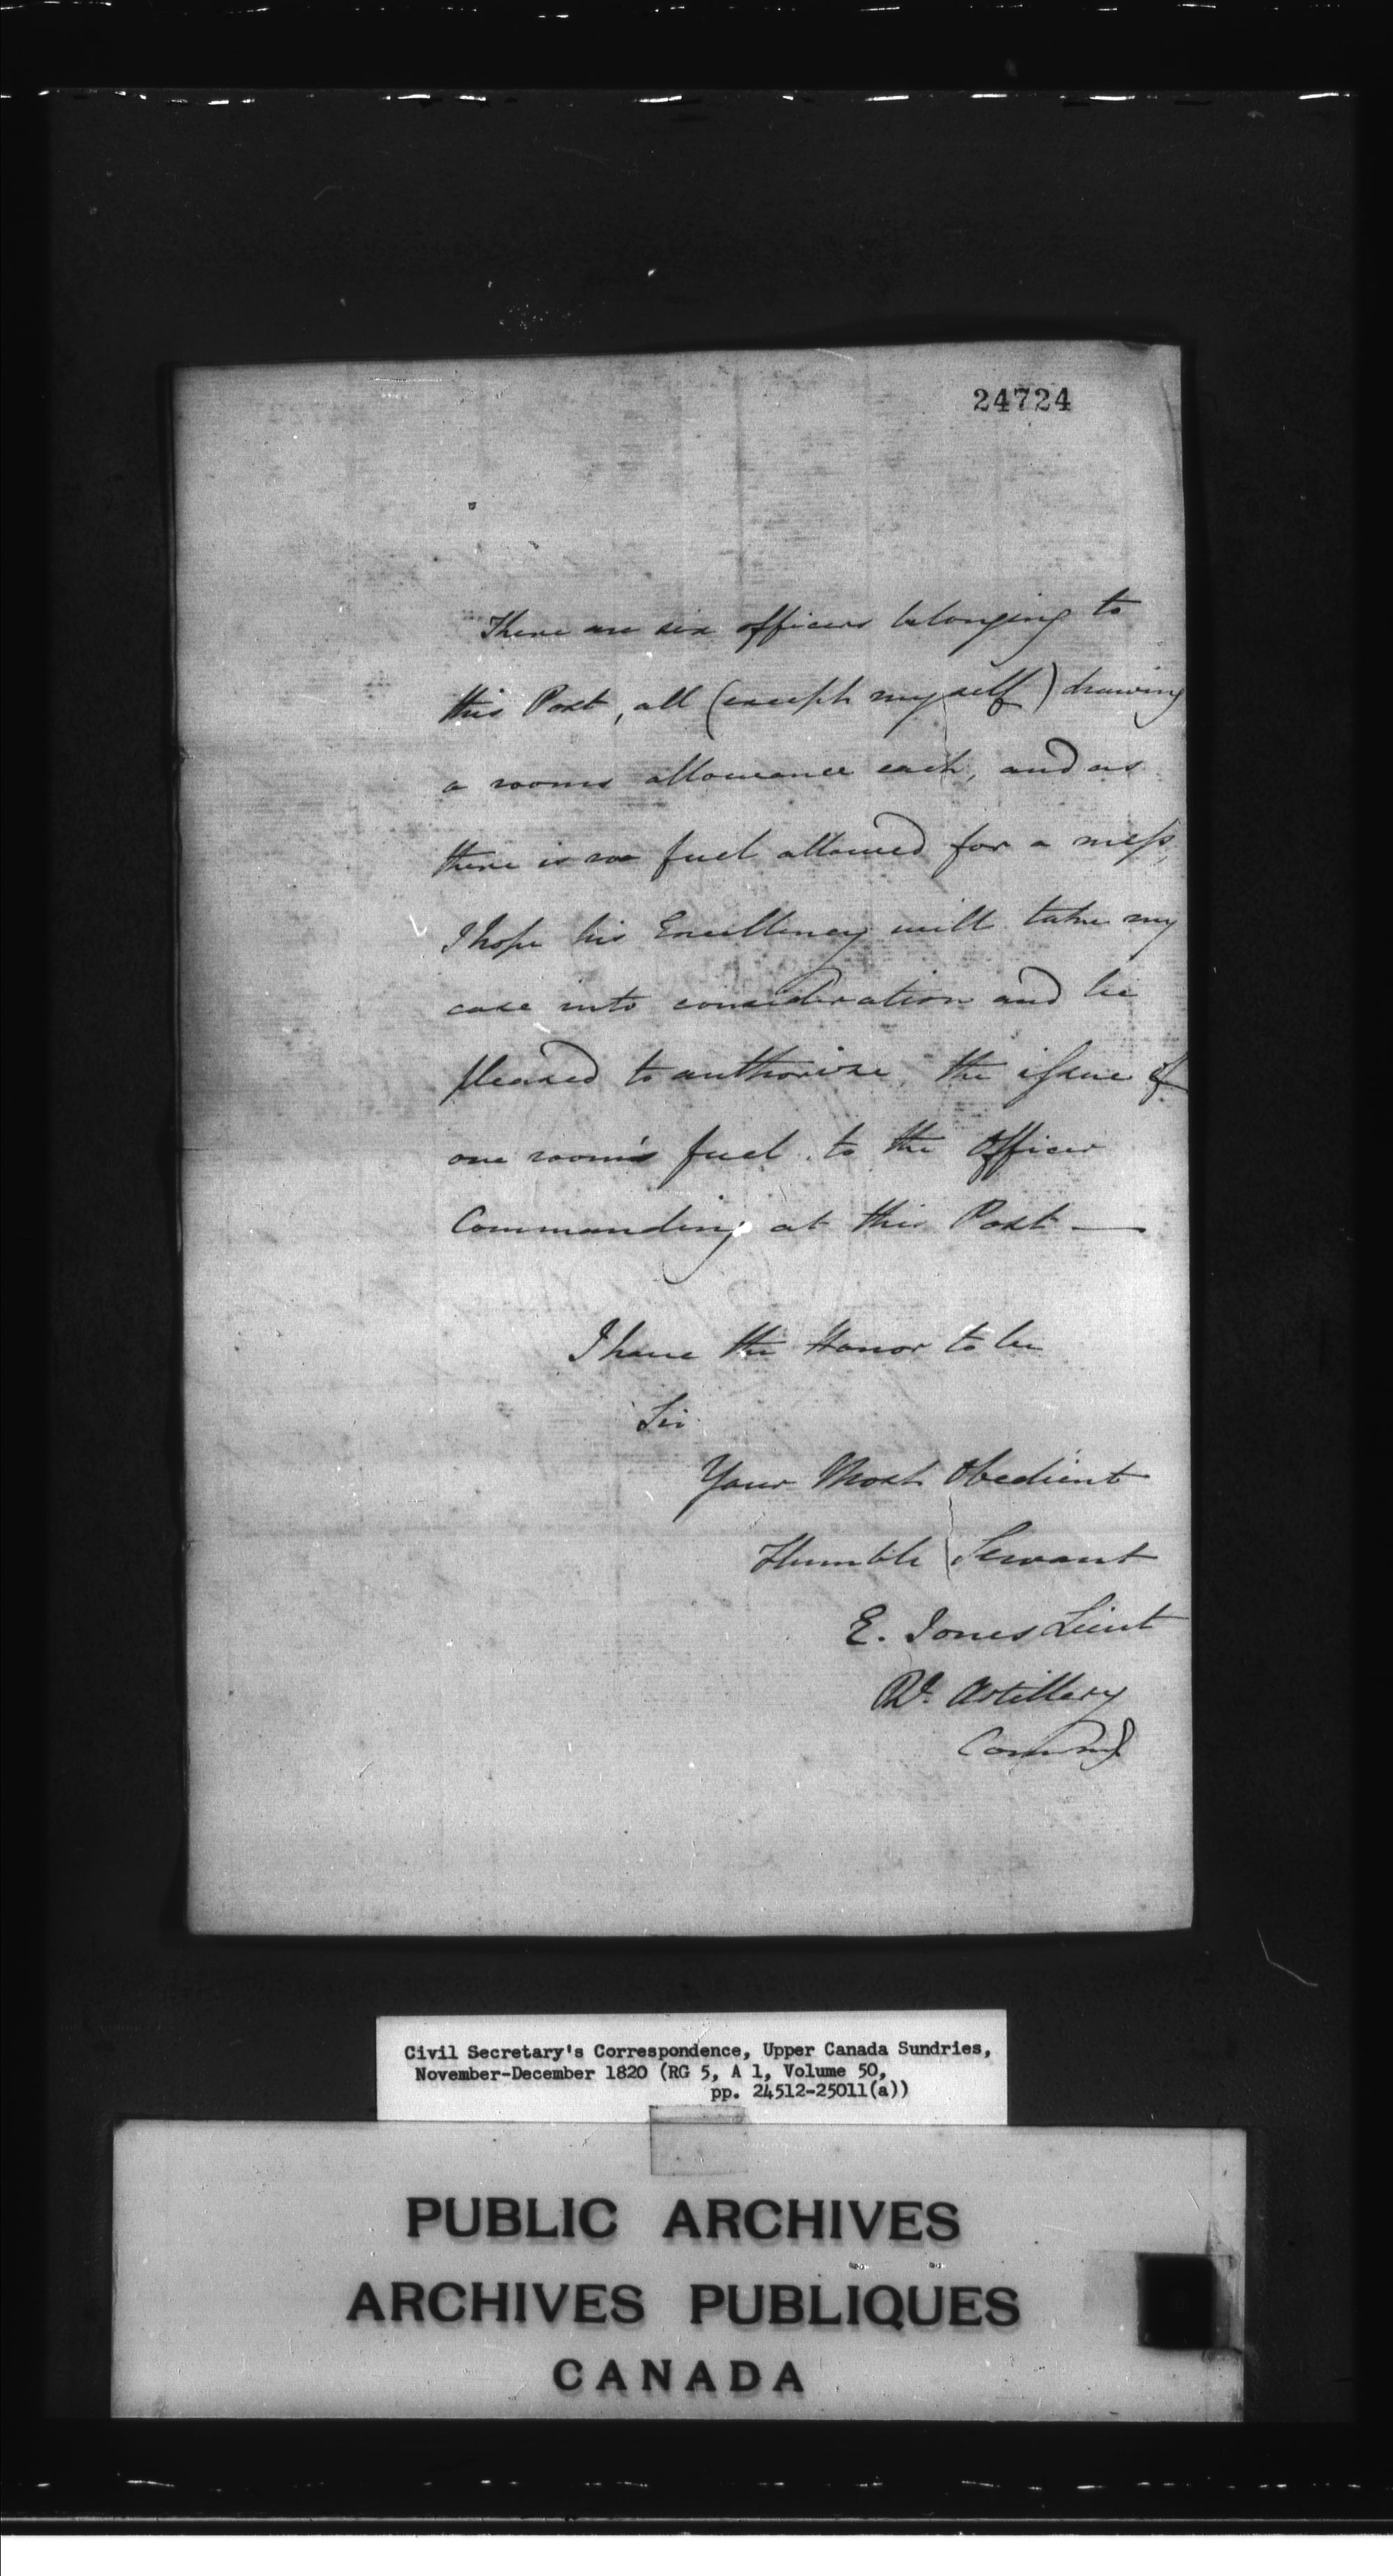 24724
There are six officers belonging to
this Post, all (except myself) drawing
a rooms allowance each, and as
there is no fuel allowed for a mess,
I hope his Excellency will take my
case into consideration and be
pleased to authorize the issue of
one room's fuel to the Officer
Commanding at this Post —
I have the Honor to be
Sir
Your Most Obedient
Humble Servant
E. Jones Lieut
Rl. Artillery
Commd
Civil Secretary's Correspondence, Upper Canada Sundries,
November-December 1820 (RG 5, A 1, Volume 50,
pp. 24512-25011(a))
PUBLIC ARCHIVES
ARCHIVES PUBLIQUES
CANADA